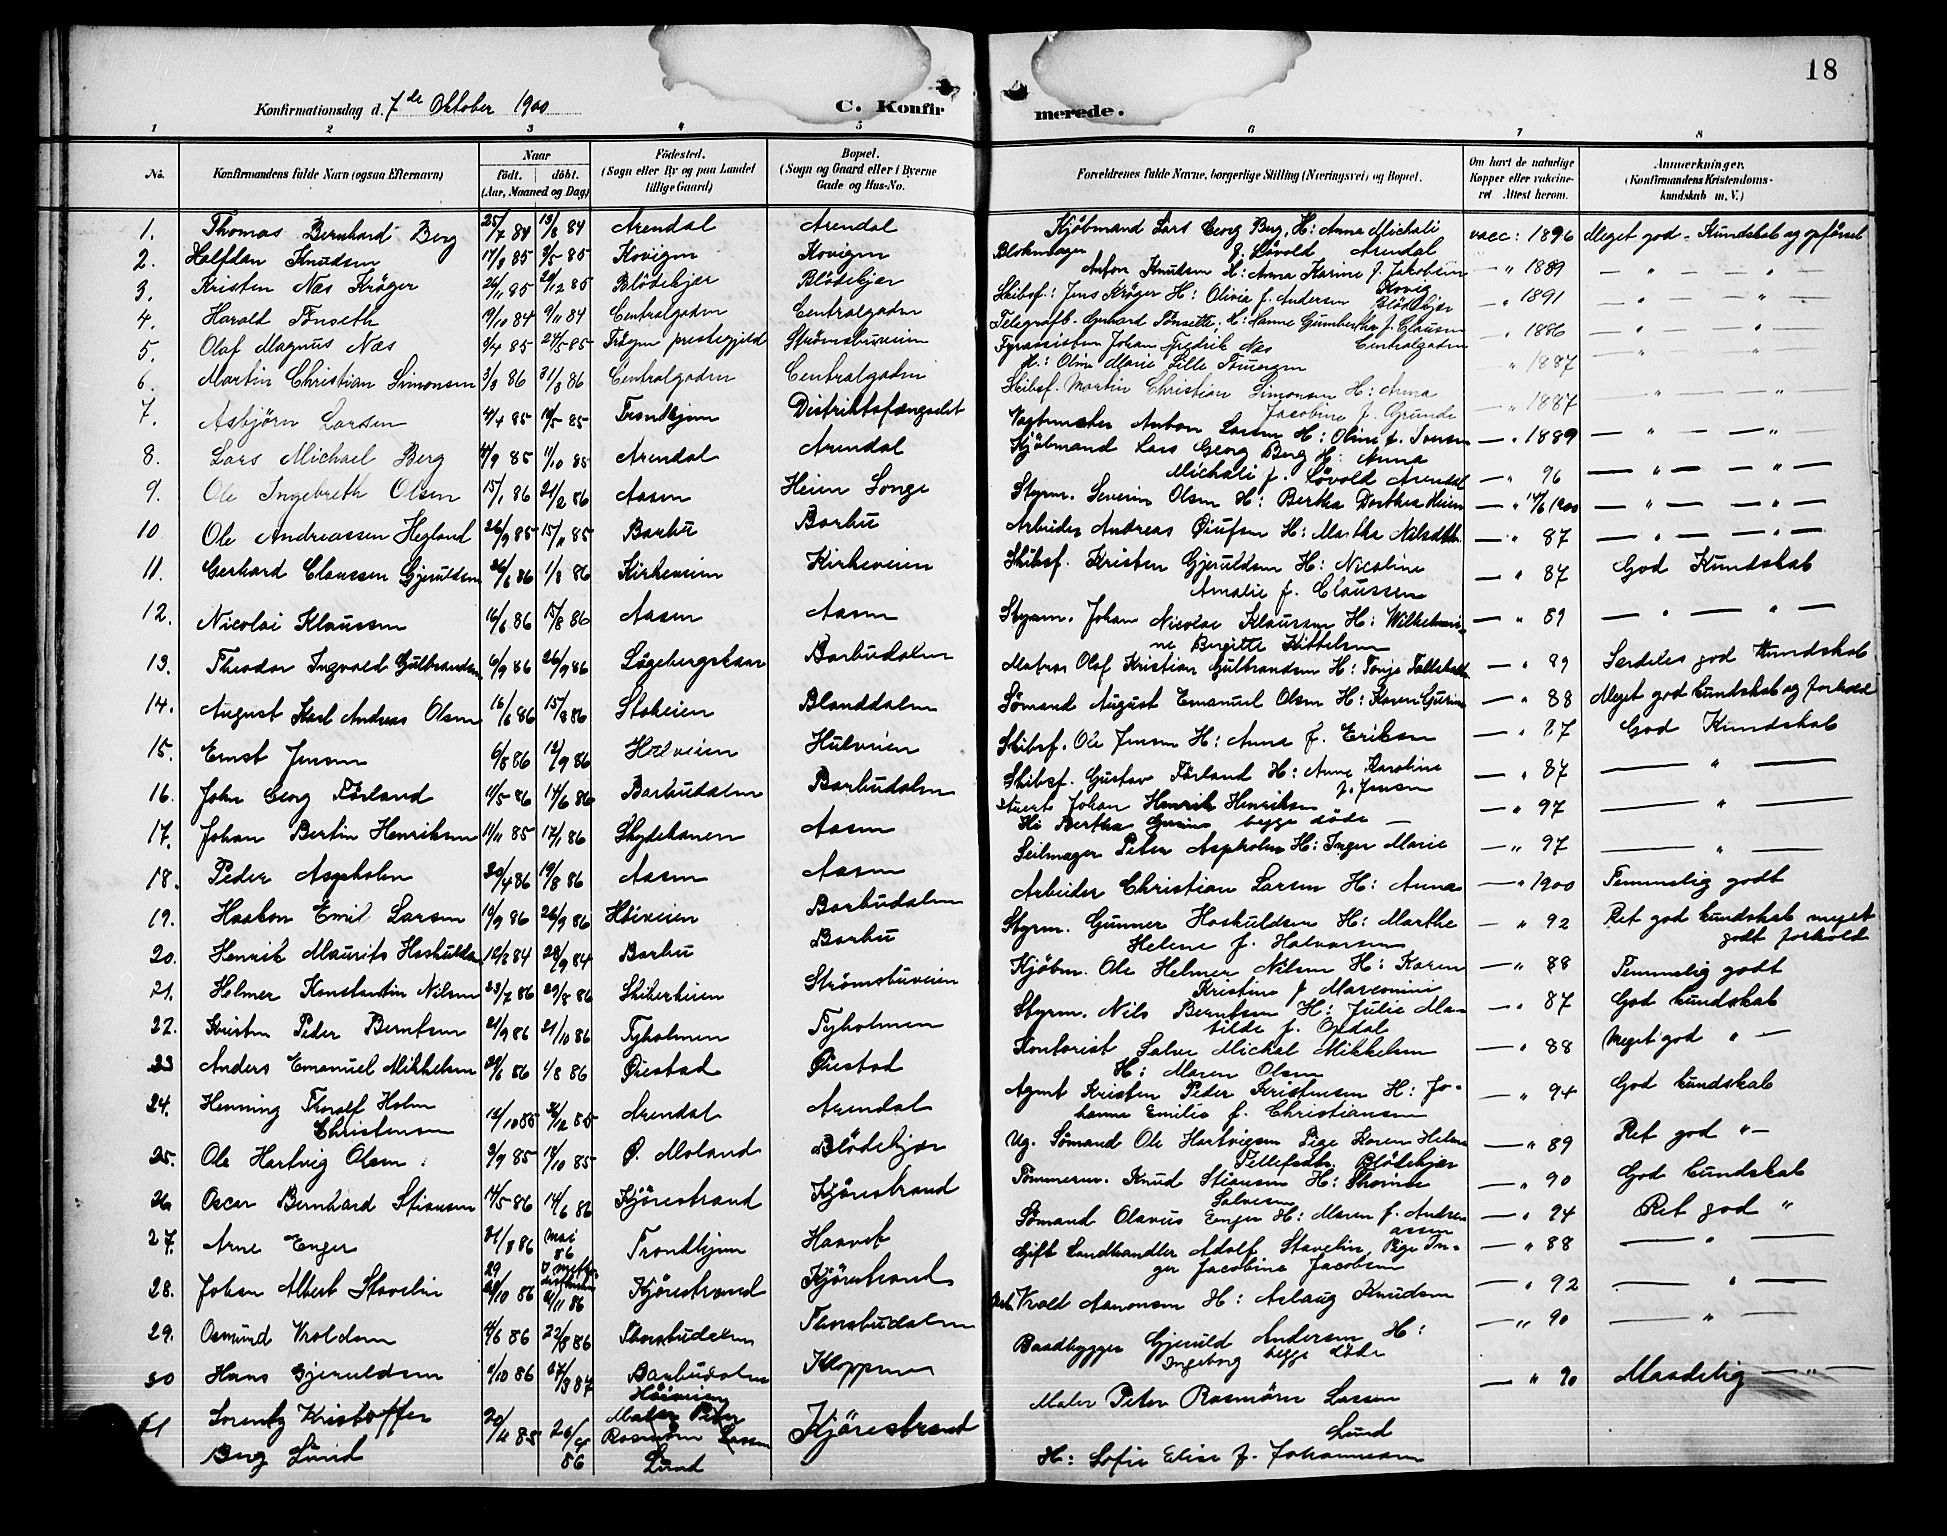 18
Konfirmationsdag d. 7de Oktober 1900
C. Konfirmerede.
1 2 3 4 5 6 7 8
No.
Konfirmandens fulde Navn (ogsaa Efternavn)
Naar
født. døbt.
(Aar, Maaned og Dag)
Fødested.
(Sogn eller By og paa Landet
tillige Gaard)
Bopæl.
(Sogn og Gaard eller i Byerne
Gade og Hus-No.
Forældrenes fulde Navne, borgerlige Stilling (Næringsvei) og Bopæl.
Om havt de naturlige
Kopper eller vakcine-
ret Attest herom.
Anmærkninger.
(Konfirmandens Kristendoms-
kundskab m. V.)
1. Thomas Bernhard Berg 25/7 84 84 Arendal Arendal Kjøbmand Lars Georg Berg, H: Anna Michali vacc: 1896 Meget god Kundskab og opførsel
f. Løvold Arendal
2. Halfdan Knudsen 85 3/5 85 Kovigen Kovigen Blokmager
Anton Knudsen H: Anna Karine f. Jakobsen — " 1889 — " — — " —
3. Kristen Næs Krøger 26/11 85 29/12 85 Blødekjær Blødekjær Skibsf.: Jens Krøger H: Olivia f. Andersen Blødekjær — " 1891 — " — — " —
4. Harald Tønseth 19/10 84 9/11 84 Centralgaden Centralgaden Telegrafb. Gerhard Tønseth, H: Hanne f. Clausen — " 1886 — " — — " —
Centralgaden
5. Olaf Magnus Næs 3/4 85 24/5 85 præstegjeld Strømsbuveien Johan Fredrik Næs " 1887 — " — — " —
H.: Oline Marie
6. Martin Christian Simonsen 3/3 86 31/3 86 Centralgaden Centralgaden Skibsf. Martin Christian Simonsen H: Anna
Jacobine f. Grunde — " 1887 — " — — " —
7. Asbjørn Larsen 4/4 85 19/5 85 Trondhjem Distriktsfængselet Vagtmester Anton Larsen H: Oline f. Iversen — " 1889 — " — — " —
8. Lars Michael Berg 4/9 85 11/10 85 Arendal Arendal Kjøbmand Lars Georg Berg H: Anna
Michali f. Løvold Arendal — " 96 — " — — " —
9. Ole Ingebreth Olsen 15/1 86 21/2 86 Aasen Heien Longe Styrm. Severin Olsen H: Bertha Dorthea Heien — " 14/6 1900 — " — — " —
10 Ole Andreassen Hegland 26/9 85 15/11 85 Barbu Barbu Arbeider Andreas H: Martha — " 87 — " — — " —
11. Gerhard Claussen Gjeruldsen 26/6 86 1/8 86 Kirkeveien Kirkeveien Skibsf. Kristen Gjeruldsen H: Nicoline
Amalie f. Claussen — " 87 God Kundskab
12. Nicolai Klaussen 14/6 86 15/8 86 Aasen Aasen Styrm. Johan Nicolai Klaussen H: Wilhelmi-
ne Birgitte Kittelsen — " 89 — " — " —
13. Theodor Ingvald Gulbrandsen 6/9 86 26/9 86 Barbudalen Matros Olaf Kristian Gulbrandsen H: Tonje — " 89 Særdeles god Kundskab
14. August Karl Andreas Olsen 16/6 86 15/8 86 Stoheien Blanddalen Sømand August Emanuel Olsen H: Karen — " 88 Meget god kundskab og forhold
15. Ernst Jensen 6/8 86 12/9 86 Hulveien Skibsf. Ole Jensen H: Anna f. Eriksen — " 87 God Kundskab
16. John Georg Førland 11/5 86 14/6 86 Barbudalen Barbudalen Skibsf. Gustav Førland H: Anne Karoline
f. Jensen — " 87 — " —
17. Johan Bertin Henriksen 11/11 85 17/1 86 Skydebanen Aasen Stuert Johan Henrik Henriksen
H: Bertha begge døde — — " 97 — " —
18. Peder Aspholm 20/4 86 19/8 86 Aasen Aasen Seilmager Peter Aspholm H: Inger Marie — " 97 — " —
19. Haakon Emil Larsen 12/9 86 26/9 86 Høiveien Barbudalen Arbeider Christian Larsen H: Anna — " 1900 Temmelig godt
20. Henrik Maurits Hoskuldsen 84 28/9 84 Barbu Barbu Styrm. Gunner Hoskuldsen H: Marthe
Helene f. Halvorsen — " 92 Ret god kundskab meget
godt forhold
21. Helmer Konstantin Nilsen 23/7 86 29/8 86 Strømsbuveien Kjøbm. Ole Helmer Nilsen H: Karen
Kristine f. — " 88 Temmelig godt
22. Kristen Peder Berntsen 21/9 86 21/10 86 Tyholmen Tyholmen Styrm. Nils Berntsen H: Julie Ma-
tilde f. — " 87 God kundskab
23 Anders Emanuel Mikkelsen 86 1/8 86 Øiestad Øiestad Kontorist Salve Michal Mikkelsen
H: Maren Olsen — " 88 Meget god " —
24. Henning Thoralf Holm
Christensen 12/10 85 26/12 85 Arendal Arendal Agent Kristen Peder Kristensen H: Jo-
hanna Emilie f. Christiansen — " 94 God kundskab
25. Ole Hartvig Olsen 3/9 85 18/10 85 Ø. Moland Blødekjær Ug. Sømand Ole Hartvigsen Pige Karen Helene
Blødekjær — " 89 Ret god " —
26 Oscar Bernhard Stiansen 14/5 86 14/6 86 Kjørestrand Kjørestrand Tømmerm. Knud Stiansen H:
Salvesen — " 90 God kundskab
27. Arne Enger 31/8 86 mai
86 Trondhjem Haavet Sømand Olavus Enger H: Maren f. Andre-
assen — " 94 Ret god "
28. Johan Albert Stavelin 29/10 86 11/11 86 Kjørestrand Kjørestrand Gift Landhandler Adolf Stavelin, Pige In-
ger Jacobine Jacobsen — " 88 — " —
29. Osmund Vroldsen 4/6 86 22/8 86 Thorsbudalen Thorsbudalen Vrold Aanonsen H: Aslaug Knudsen — " 92 — " —
30 Hans Gjeruldsen 2/10 86 27/3 87 Barbudalen Kloppene Baadbygger Gjeruld Andersen H:
Ingeborg begge døde — " 90 — " —
31 Lorentz Kristoffer
Berg Lund 20/11 85 26/4
86 Høiveien
Maler Peter
Rasmøрn Lassen
Lund Kjørestrand Maler Peter Rasmørn Lassen
Lund
H: Sofie Elise f. Johannesen — " 90 Maadelig — " —